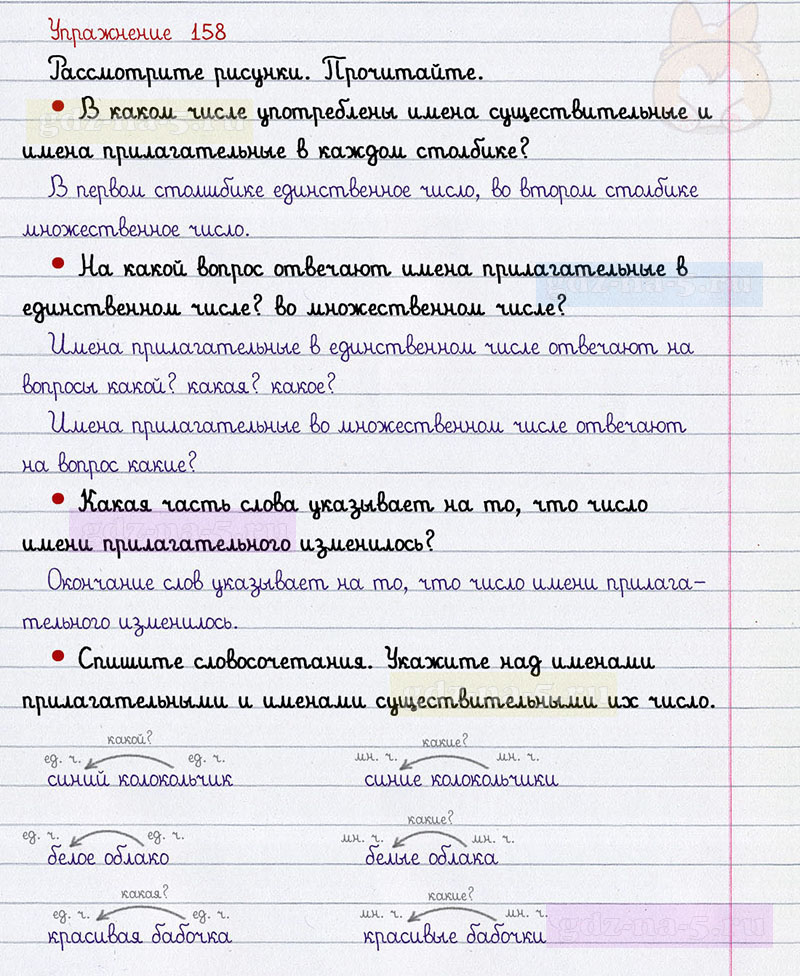 Упражнение 158
Рассмотрите рисунки. Прочитайте.
• В каком числе употреблены имена существительные и
gdz-na-5.ru
имена прилагательные в каждом столбике?
В первом столшбике единственное число, во втором столбике
множественное число.
• На какой вопрос отвечают имена прилагательные в
gdz-na-5.ru
единственном числе? во множественном числе?
Имена прилагательные в единственном числе отвечают на
вопросы какой? какая? какое?
Имена прилагательные во множественном числе отвечают
на вопрос какие?
• Какая часть слова указывает на то, что число
gdz-na-5.ru
имени прилагательного изменилось?
Окончание слов указывает на то, что число имени прилага-
тельного изменилось.
• Спишите словосочетания. Укажите над именами
gdz-na-5.ru
прилагательными и именами существительными их число.
какой? какие?
ед. ч. ед. ч. мн. ч. мн. ч.
синий колокольчик синие колокольчики
какие?
ед. ч. ед. ч. мн. ч. мн. ч.
белое облако белые облака
какая? какие?
ед. ч. ед. ч. мн. ч. мн. ч.
красивая бабочка красивые бабочки
gdz-na-5.ru